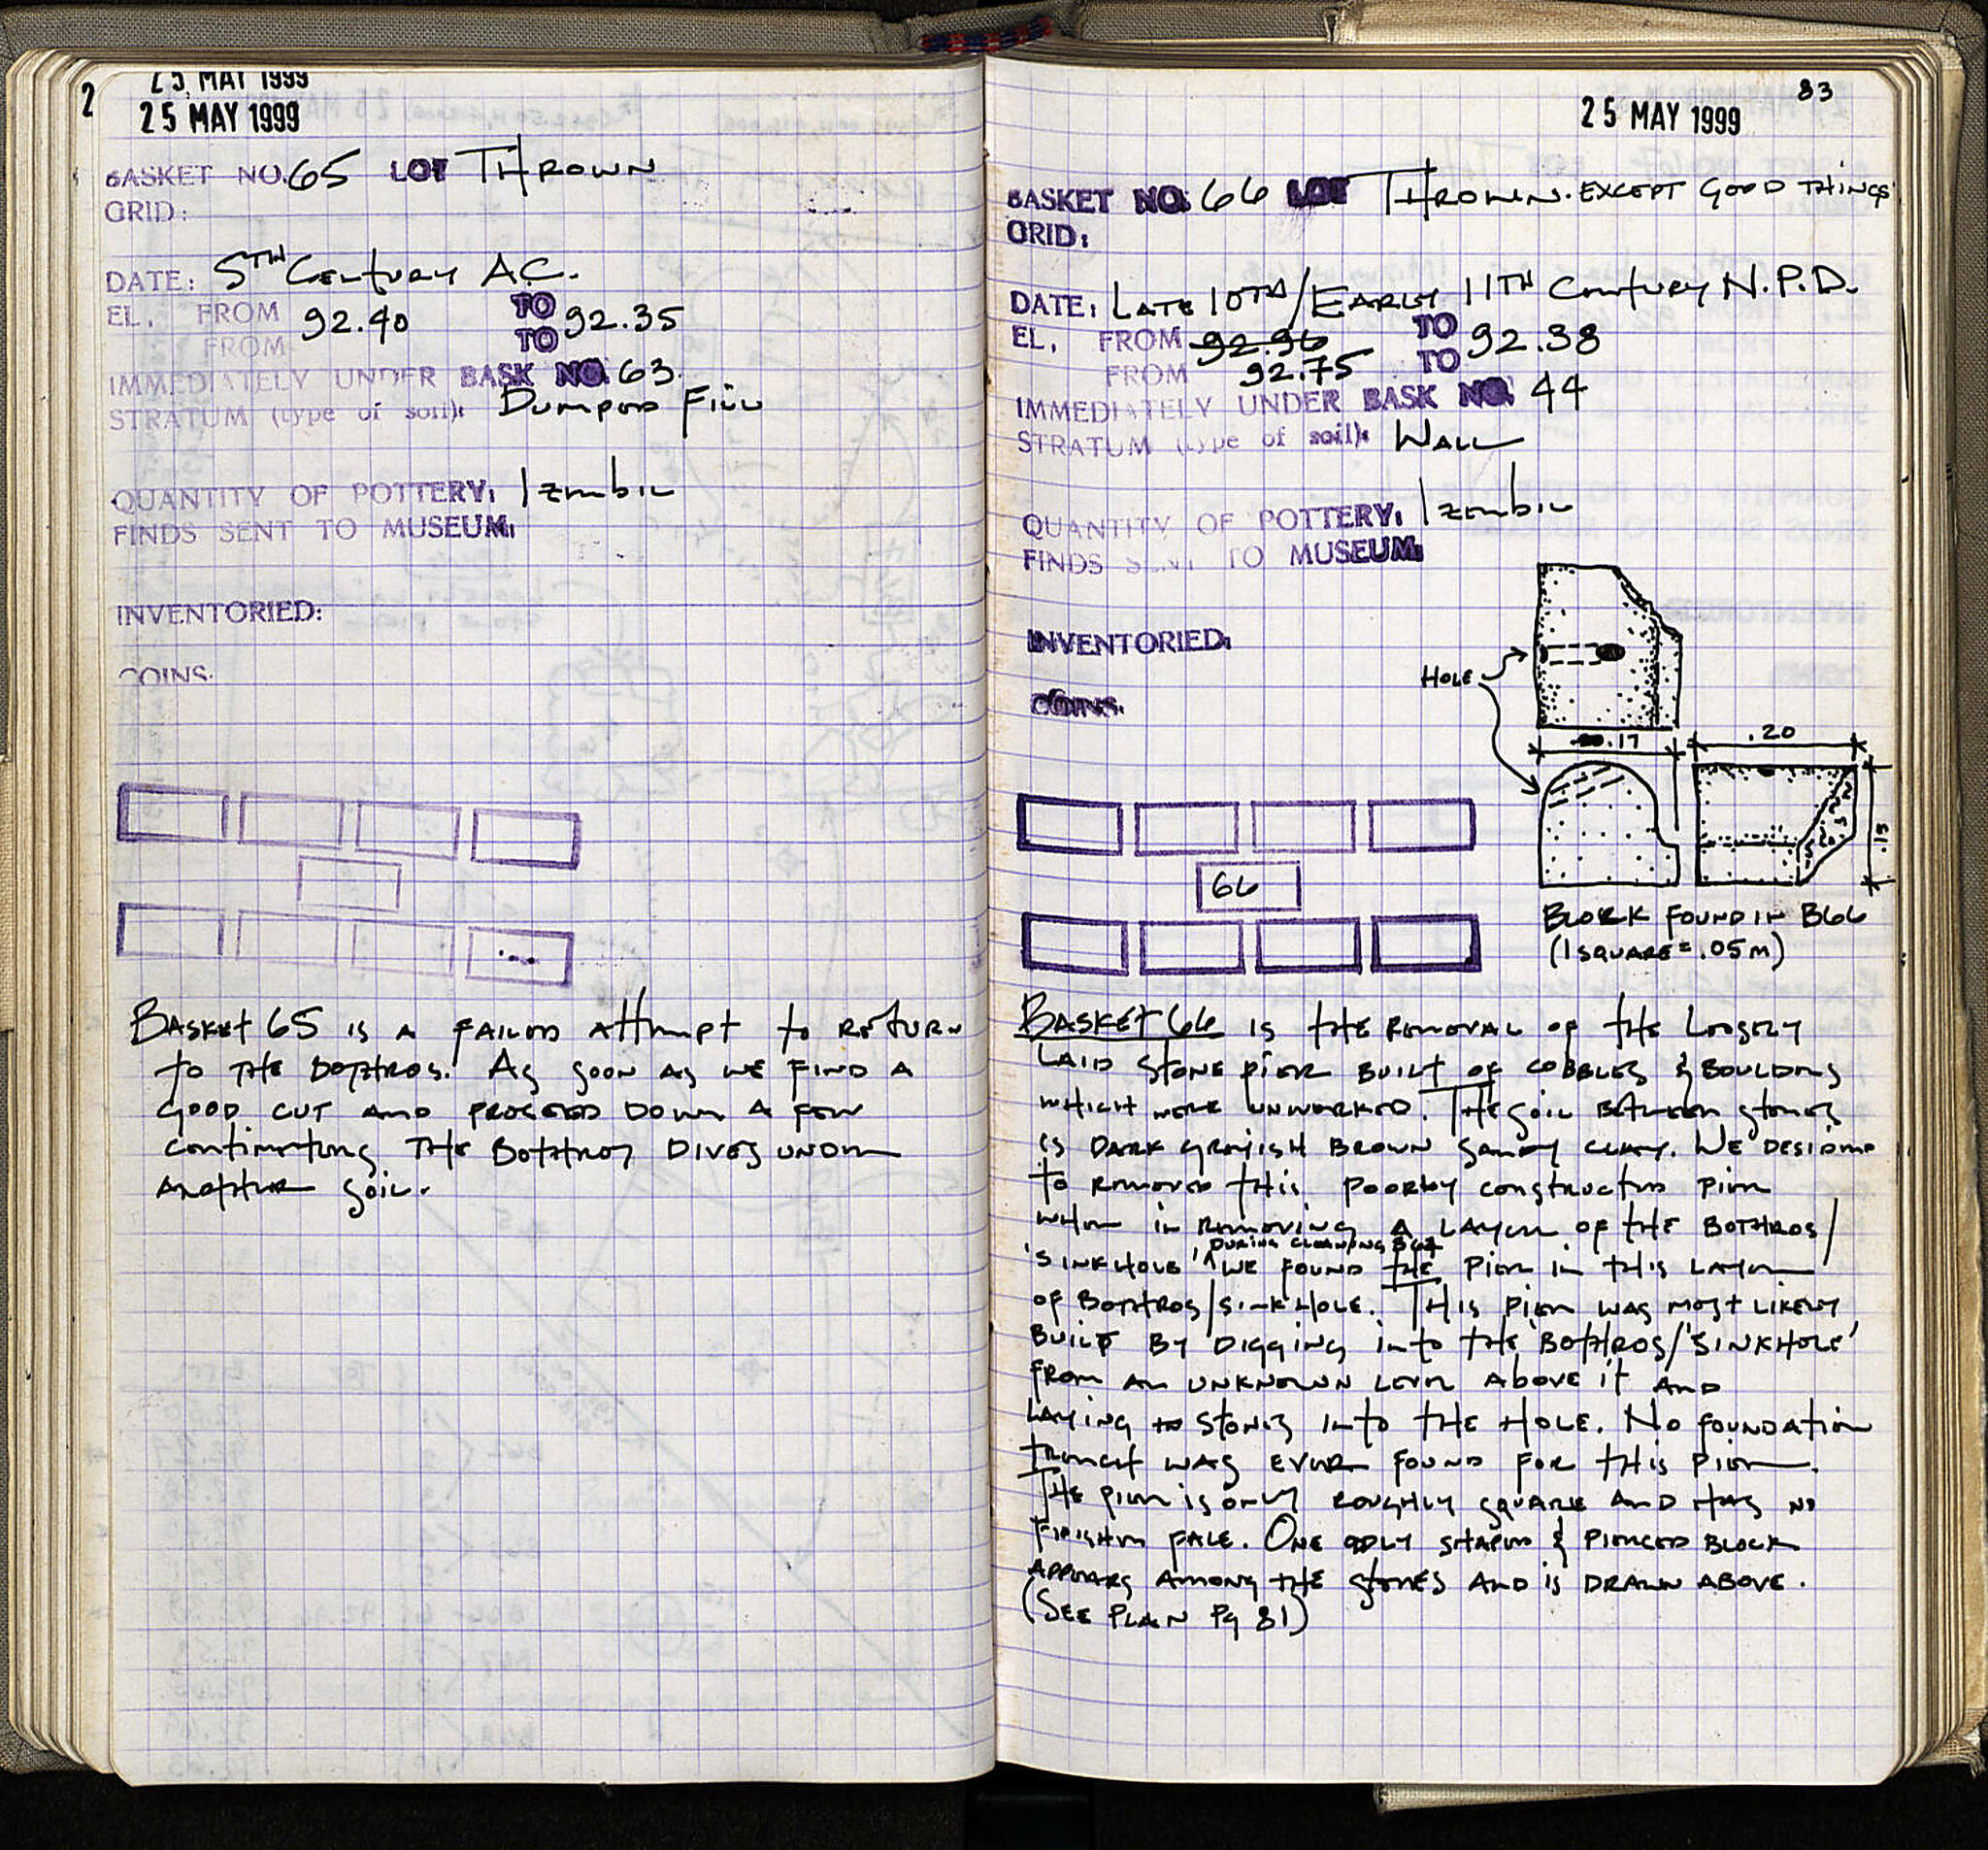 2
25 MAY 1999
25 MAY 1999
BASKET NO. 65 LOT THROWN
GRID:
DATE: 5TH CENTURY A.C.
EL. FROM 92.40 TO 92.35
FROM TO
IMMEDIATELY UNDER BASK NO. 63.
STRATUM (type of soil): DUMPED FILL
QUANTITY OF POTTERY: 1 zmbil
FINDS SENT TO MUSEUM:
INVENTORIED:
COINS.
BASKET 65 IS A FAILED ATTEMPT TO RETURN
TO THE BOTHROS. AS SOON AS WE FIND A
GOOD CUT AND PROCEED DOWN A FEW
CENTIMETERS THE BOTHROS DIVES UNDER
ANOTHER SOIL.
83
25 MAY 1999
BASKET NO. 66 LOT THROWN. EXCEPT GOOD THINGS
GRID:
DATE: LATE 10TH/EARLY 11TH CENTURY N.P.D.
EL. FROM 92.96 TO 92.38
FROM 92.75 TO
IMMEDIATELY UNDER BASK NO. 44
STRATUM (type of soil): WALL
QUANTITY OF POTTERY: 1 zembil
FINDS SENT TO MUSEUM:
INVENTORIED:
COINS.
HOLE
.17
.20
66
BLOCK FOUND IN B66
(1 SQUARE = .05M)
BASKET 66 IS THE REMOVAL OF THE LOOSELY
LAID STONE PIER BUILT OF COBBLES & BOULDERS
WHICH WERE UNWORKED. THE SOIL BETWEEN STONES
IS DARK GRAYISH BROWN SANDY CLAY. WE DESIDED
TO REMOVED THIS POORLY CONSTRUCTED PIER
WHEN IN REMOVING A LAYER OF THE BOTHROS/
DURING CLEANING B67
'SINKHOLE' WE FOUND THE PIER IN THIS LAYER
OF BOTHROS/SINKHOLE. THIS PIER WAS MOST LIKELY
BUILT BY DIGGING INTO THE BOTHROS/'SINKHOLE'
FROM AN UNKNOWN LEVEL ABOVE IT AND
LAYING STONES INTO THE HOLE. NO FOUNDATION
TRENCH WAS EVER FOUND FOR THIS PIER.
THE PIER IS ONLY ROUGHLY SQUARE AND HAS NO
FINISHED FACE. ONE ODLY SHAPED & PIERCED BLOCK
APPEARS AMONG THE STONES AND IS DRAWN ABOVE.
(SEE PLAN Pg 81)